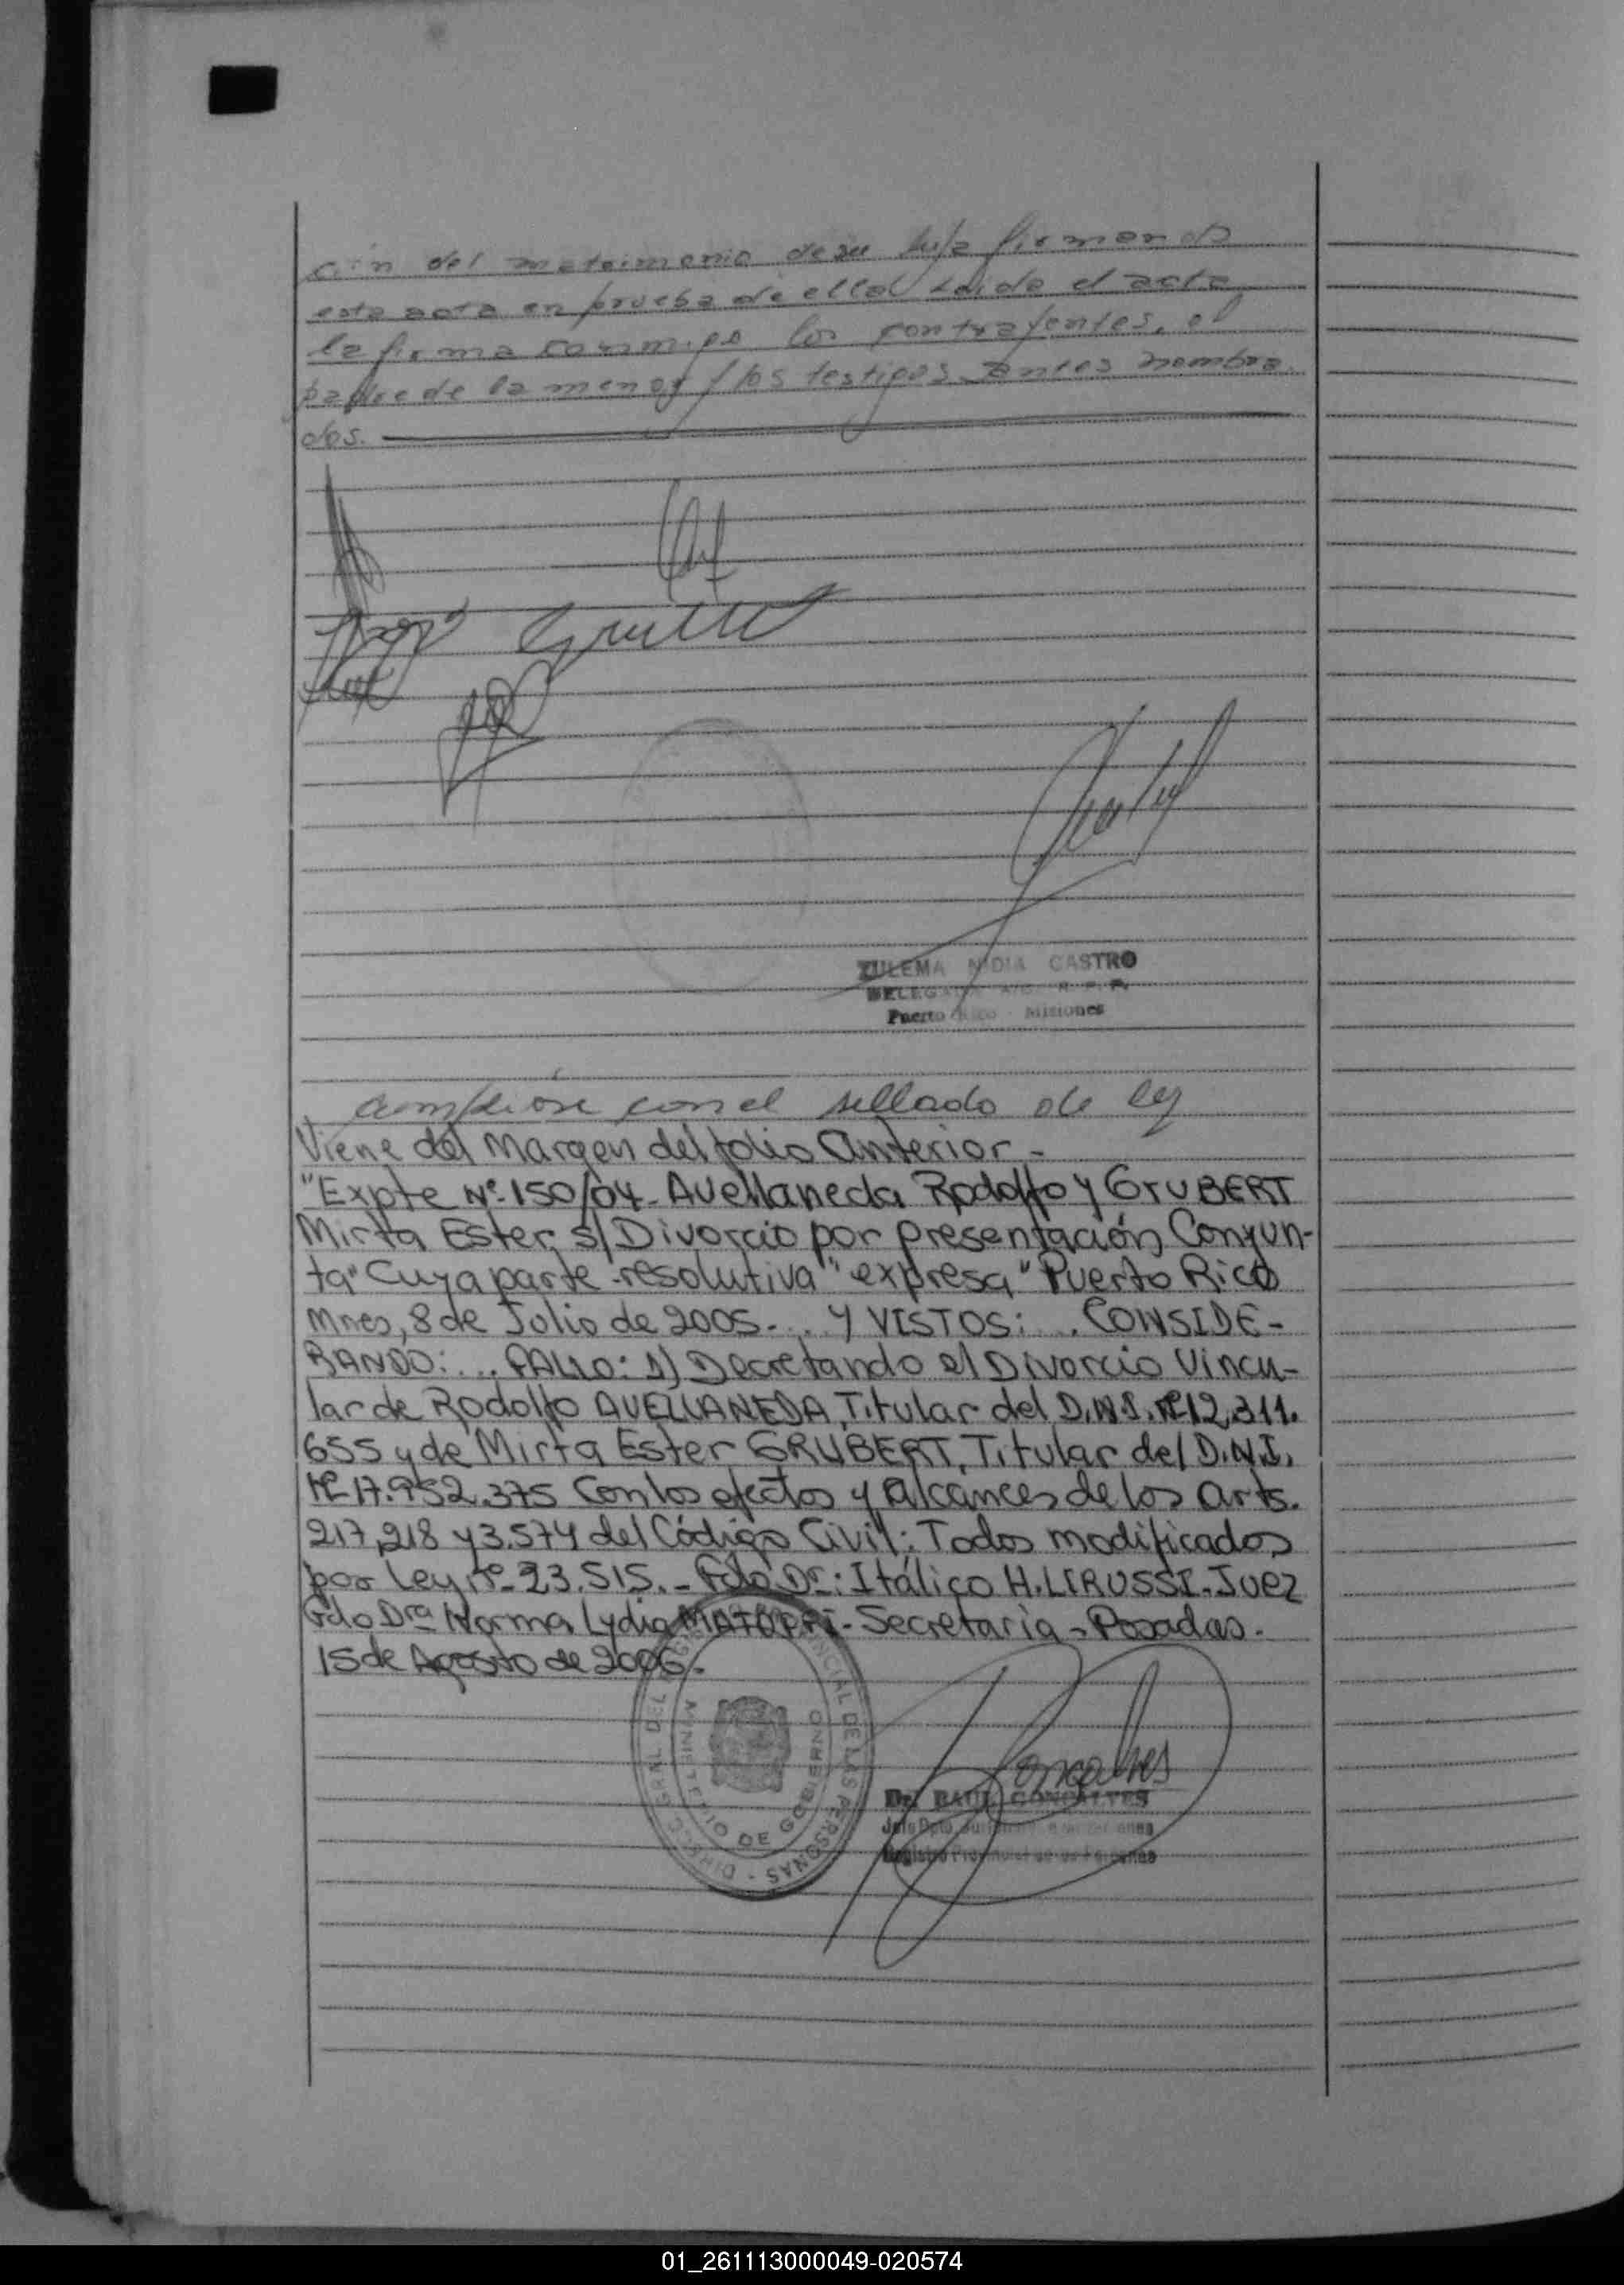 ción del matrimonio de su hija firmando
esta acta en prueba de ella Leida el acta
la firma conmigo los contrayentes, el
padre de la menor y los testigos antes nombra
dos.
ZULEMA NIDIA CASTRO
DELEGADA R. P. P.
Puerto Rico - Misiones
Cumplióse con el sellado de ley
Viene del Margen del folio Anterior -
"Expte Nº 150/04 - Avellaneda Rodolfo y GruBERT
Mirta Ester s/ Divorcio por presentación Conyun-
ta" Cuya parte resolutiva "expresa" Puerto Rico
Mnes, 8 de Julio de 2005... Y VISTOS: ... CONSIDE-
RANDO: ... FALLO: 1) Decretando el Divorcio Vincu-
lar de Rodolfo AVELLANEDA, Titular del D.N.I. Nº 12.311.
655 y de Mirta Ester GRUBERT, Titular del D.N.I.
Nº 17.952.375 Con los efectos y alcances de los arts.
217, 218 y 3.574 del Código Civil: Todos modificados
por Ley Nº 23.515. - Fdo Dr: Itálico H. LIRUSSI - Juez
Fdo Dra Norma Lydia - Secretaria - Posadas.
15 de Agosto de 2006.
DIREC. GRAL. DEL REGISTRO PROVINCIAL DE LAS PERSONAS
MINISTERIO DE GOBIERNO
Goncalves
Dr. RAUL GONCALVES
Jefe Dpto.
Registro Provincial de las Personas
01_261113000049-020574